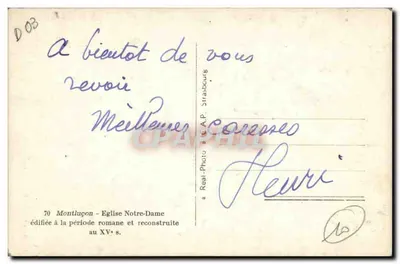 D 03
A bientot de vous
revoir
Meilleures caresses
Henri
Real-Photo C.A.P. Strasbourg
70 Montluçon - Eglise Notre-Dame
édifiée à la période romane et reconstruite
au XVe s.
10